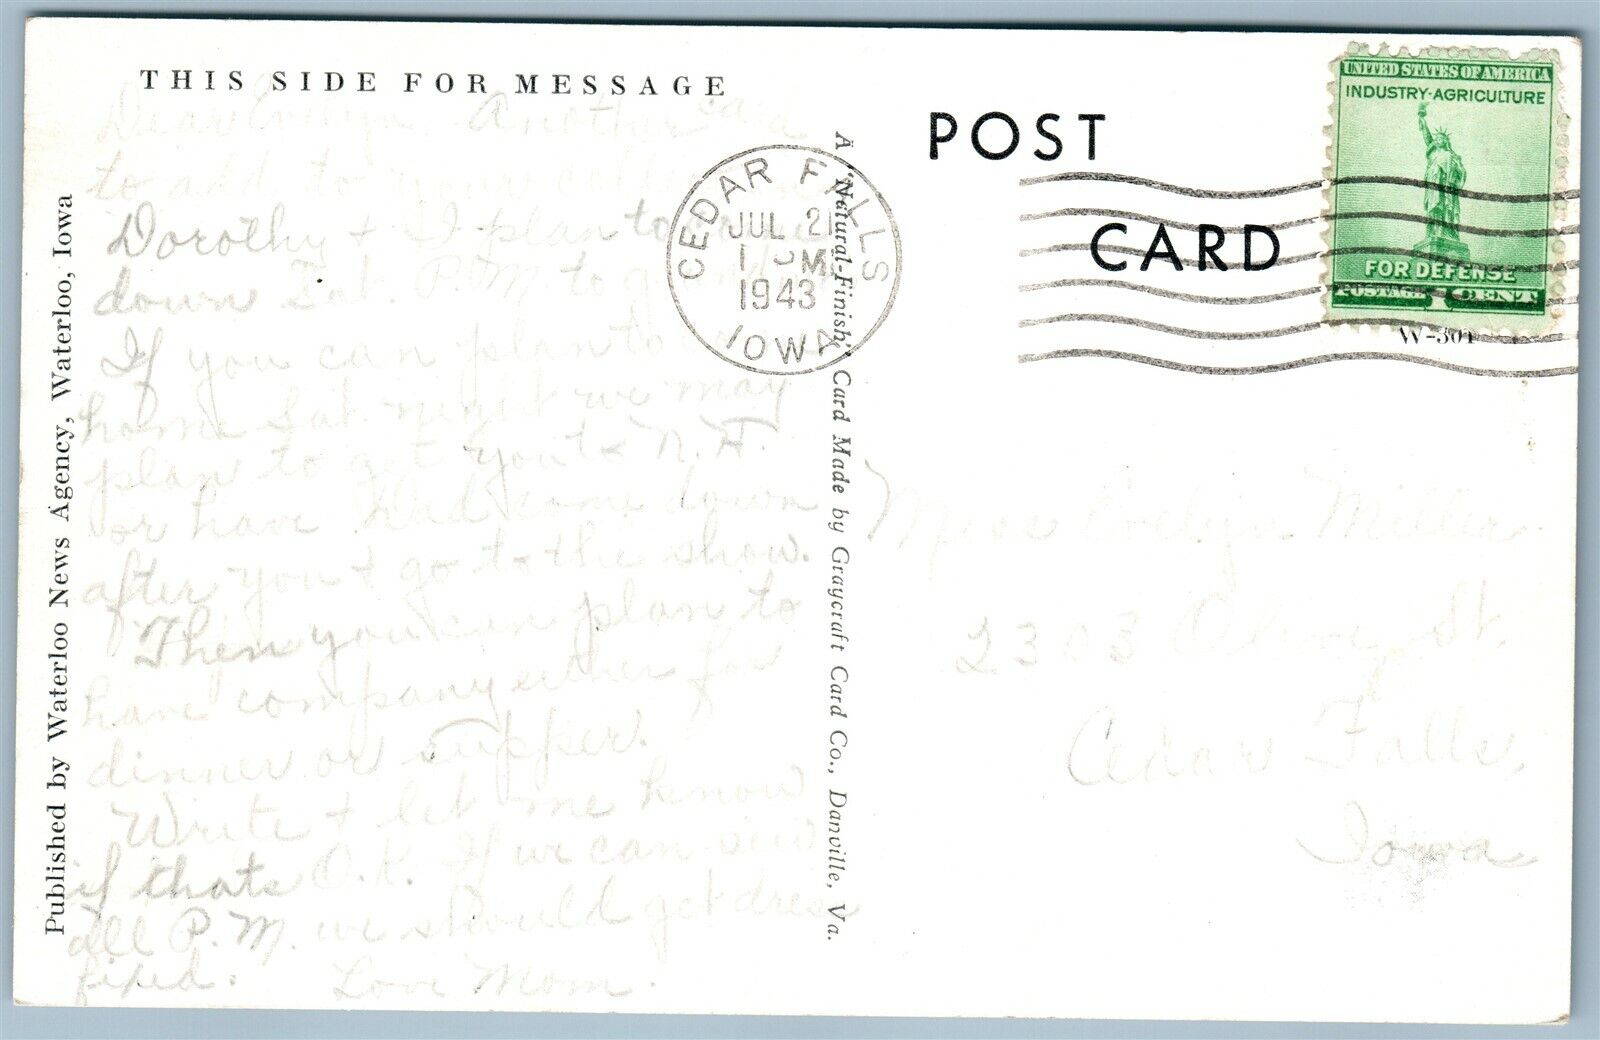 THIS SIDE FOR MESSAGE
Dear Evelyn, Another card
to add to your
Dorothy & I plan to
down Sat. P.M. to
If you can plan to
home Sat. night we may
plan to get you to N.H.
or have Dad come down
after you & go to the show.
Then you can plan to
have company either for
dinner or supper.
Write & let me know
if thats O.K. If we can sew
all P.M. we should get dress
fixed. Love Mom.
Published by Waterloo News Agency, Waterloo, Iowa
A "Natural-Finish" Card Made by Graycraft Card Co., Danville, Va.
CEDAR FALLS
JUL 21
1 PM
1943
IOWA
POST
CARD
UNITED STATES OF AMERICA
INDUSTRY-AGRICULTURE
FOR DEFENSE
POSTAGE 1 CENT
W-301
Miss Evelyn Miller
2303 Olive St.
Cedar Falls,
Iowa